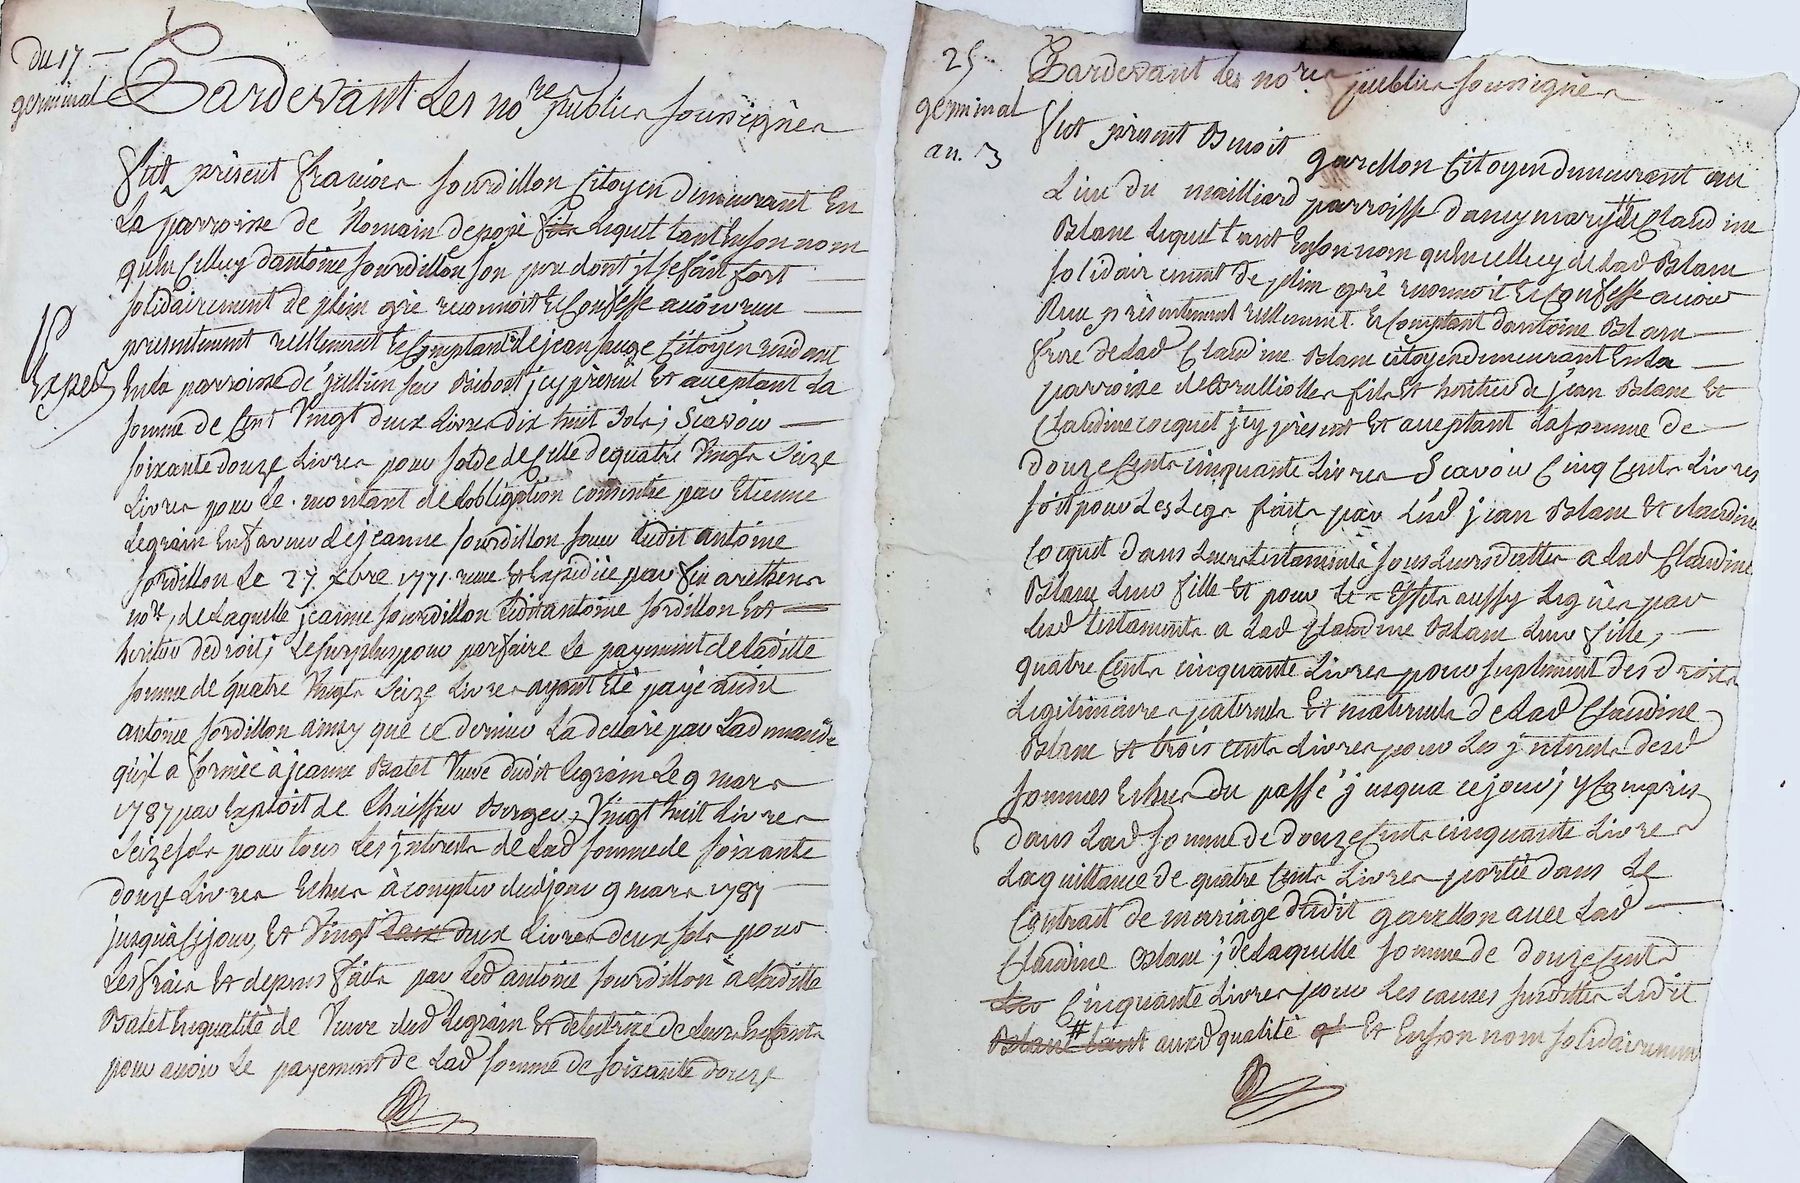 du 17
germinal
Pardevant les no.re publics soussignés
Fut présent François sourdillon Citoyen demeurant En
la parroisse de Romain de popé lequel tant En son nom
qu'En Celluy d'antoine sourdillon son pere dont il se fait fort
solidairement de plein gré reconnoit Et Confesse avoir reçu
presentement réellement Et Comptant de jean sauze Citoyen résidant
En la parroisse de jullien sur Bibost icy présent Et aceptant la
Exped
somme de Cent Vingt deux Livres dix huit sols ; Scavoir
soixante douze Livres pour solde de Celle de quatre Vingts Seize
Livres pour le montant de lobligation consentie par Etienne
Legrain En faveur de jeanne sourdillon soeur dudit antoine
sordillon Le 27. xbre 1771. reçue Et Expédiée par feu
no.re, de laquelle jeanne sourdillon ledit antoine sordillon Est
heritier de droit ; Le surplus pour parfaire Le payement de laditte
somme de quatre Vingts Seize Livres ayant Eté payé audit
antoine sordillon ainsy que ce dernier La déclaré par Lad demande
qu'il a formée à jeanne Batet Veuve dudit Legrain Le 9 mars
1787 par Exploit de Lhuissier Berger ; Vingt huit Livres
Seize sols pour tous Les interests de Lad somme de soixante
douze Livres Echus à compter dud jour 9 mars 1787
jusqu'à Ce jour, Et Vingt deux Livres deux sols pour
Les frais Et dépens faits par Led antoine sourdillon à Laditte
Batet En qualité de Veuve dud Legrain Et tutrice de Leurs Enfants
pour avoir Le payement de Lad somme de soixante douze
25
germinal
an. 3
Pardevant Les no.res publics soussignés
Fut présent Benoit garellon Citoyen demeurant au
Lieu du mailliard parroisse dancy mary de Claudine
Blanc Lequel tant En son nom qu'En celluy de Lad Blanc
solidairement de plein gré reconnoit Et Confesse avoir
Reçu présentement réellement Et Comptant d'antoine Blanc
frere de Lad Claudine Blanc citoyen demeurant En la
parroisse de Brulliolles fils Et heritier de jean Blanc Et
Claudine cocquet icy présent Et aceptant La somme de
douze Cents cinquante Livres Scavoir Cinq Cents Livres
soit pour Les Legs faits par Lesd jean Blanc Et claudine
Cocquet dans Leurs testaments sous Leurs dattes a Lad Claudine
Blanc Leur fille Et pour Les Effets aussy Légués par
Lesd testaments a Lad Claudine Blanc Leur fille,
quatre Cents cinquante Livres pour suplément des droits
Legitimaires paternels Et maternels de Lad Claudine
Blanc Et trois cents Livres pour Les interests desd
sommes Echus du passé jusqua ce jour ; y Compris
dans Lad somme de douze Cents cinquante Livres
La quittance de quatre Cents Livres portée dans Le
Contrat de mariage dudit garellon avec Lad
Claudine Blanc ; de Laquelle somme de douze Cents
Cinquante Livres pour Les causes susdittes Ledit
Blanc # tant auxd qualité Et En son nom solidairement